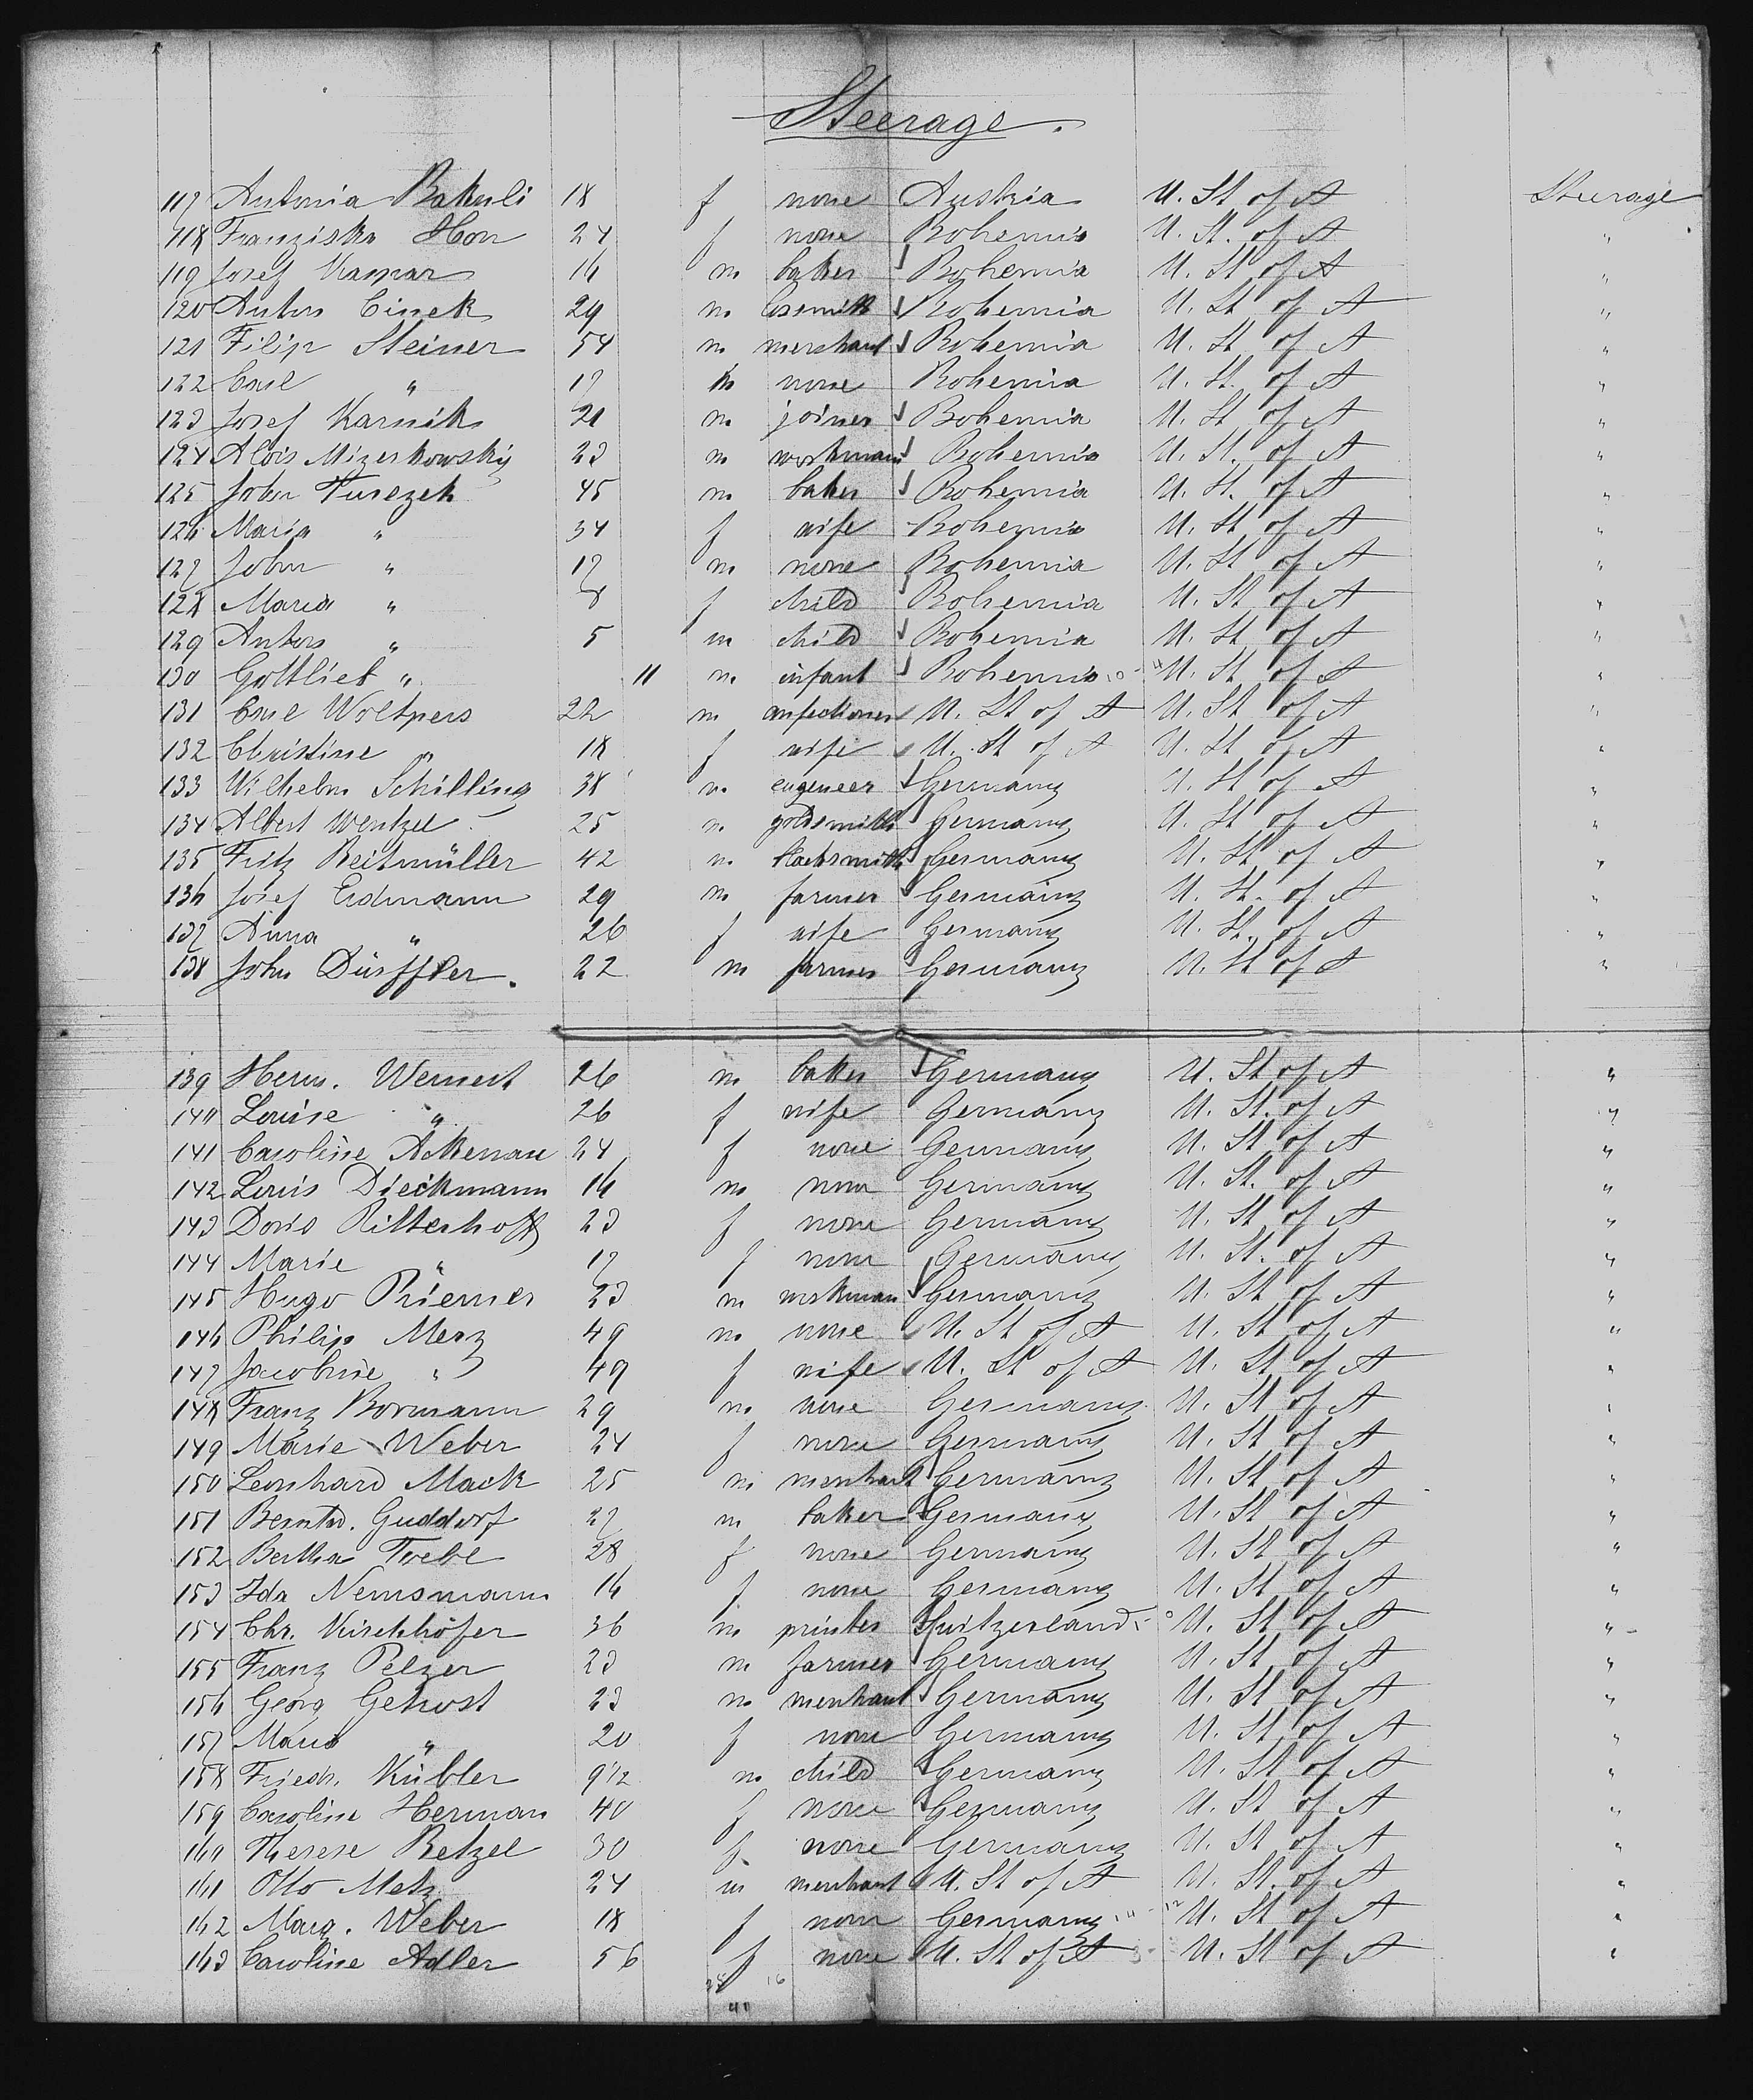 Steerage.
117 Antonia Bakuli 18 f none Austria U. St of A Steerage
118 Franziska Hon 24 f none Bohemia U. St. of A "
119 Josef Kaspar 16 m baker Bohemia U. St of A "
120 Anton Cinek 29 m Bohemia U. St of A "
121 Filip Steiner 54 m merchant Bohemia U. St of A "
122 Emil " 17 m none Bohemia U. St. of A "
123 Josef Karnik 21 m joiner Bohemia U. St of A "
124 Alois Mizerkowsky 23 m workman Bohemia U. St. of A "
125 John Turezek 45 m baker Bohemia U. St. of A "
126 Maria " 34 f wife Bohemia U. St of A "
127 John " 17 m none Bohemia U. St of A "
128 Maria " 8 f child Bohemia U. St of A "
129 Anton " 5 m child Bohemia U. St of A "
130 Gottlieb " 11 m infant Bohemia U. St of A "
131 Emil Woltpers 22 m confectioner U. St of A U. St of A "
132 Christine " 18 f wife U. St of A U. St of A "
133 Wilhelm Schilling 38 m engeneer Germany U. St of A "
134 Albert Wentzel 25 m goldsmith Germany U. St of A "
135 Fritz Reitmüller 42 m blacksmith Germany U. St of A "
136 Josef Erdmann 29 m farmer Germany U. St. of A "
137 Anna " 26 f wife Germany U. St. of A "
138 John Dürffler. 22 m farmer Germany U. St of A "
139 Herm. Wernert 26 m baker Germany U. St of A "
140 Louise " 26 f wife Germany U. St. of A "
141 Caroline 24 f none Germany U. St of A "
142 Louis Dieckmann 16 m none Germany U. St. of A "
143 Doris Ritterhoff 23 f none Germany U. St of A "
144 Marie " 17 f none Germany U. St. of A "
145 Hugo Priemer 23 m workman Germany U. St of A "
146 Philip Merz 49 m none U. St of A U. St of A "
147 Jacobine " 49 f wife U. St of A U. St of A "
148 Franz Bormann 29 m none Germany U. St of A "
149 Marie Weber 24 f none Germany U. St of A "
150 Leonhard Mack 25 m merchant Germany U. St of A "
151 Bernhd. Guddorf 27 m baker Germany U. St of A "
152 Bertha Trebe 28 f none Germany U. St of A "
153 Ida Nemsmann 16 f none Germany U. St of A "
154 Chr. Kirchhöfer 36 m printer Switzerland U. St of A "
155 Franz Pelzer 23 m farmer Germany U. St of A "
156 Georg Gehrost 23 m merchant Germany U. St of A "
157 Maria " 20 f none Germany U. St of A "
158 Friedr. Kübler 9 1/2 m child Germany U. St of A "
159 Caroline Herman 40 f none Germany U. St of A "
160 Therese Retzel 30 f none Germany U. St of A "
161 Otto Metz 24 m merchant U. St of A U. St. of A "
162 Marg. Weber 18 f none Germany U. St of A "
163 Caroline Adler 56 f none U. St of A U. St of A "